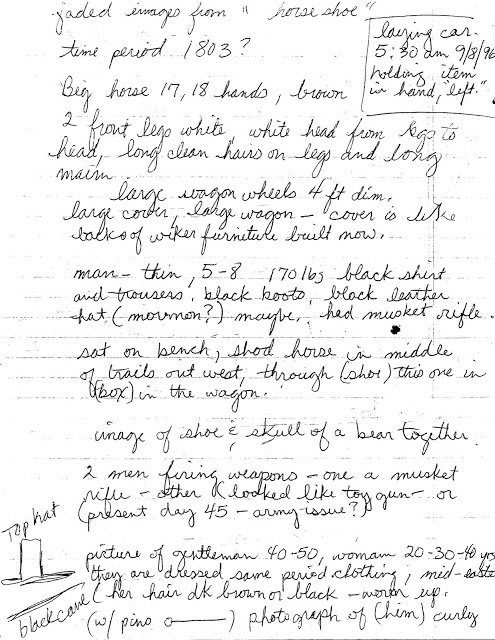 jaded images from "horse shoe"
time period 1803?
laying car.
5:30 am 9/8/96
holding item
in hand, "left".
Big horse 17, 18 hands, brown
2 front legs white, white head from legs to
head, long clean hairs on legs and long
mairn.
large wagon wheels 4 ft dim.
large cover, large wagon – cover is like
backs of wiker furniture built now.
man – thin, 5-8 170 lbs black shirt
and trousers, black boots, black leather
hat (mormon?) maybe, had musket rifle.
sat on bench, shod horse in middle
of trails out west, through (shoe) this one in
(box) in the wagon.
image of shoe & skull of a bear together
2 men firing weapons – one a musket
rifle – other (looked like toy gun – or
(present day 45 – army issue?)
Top hat
picture of gentleman 40-50, womam 20-30-40 yrs
they are dressed same period clothing, mid-easte
black cane
(her hair dk brown or black – worn up.
(w/ pins) photograph of (him) curly